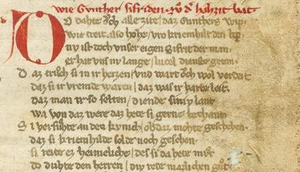 wie Gunther Sifriden zv̊ d' hohzit bat
Do dahte ŏch alle zite daz Gunthers wip
wie treit also hohe vrŏ kriemhilt den lip
nv ist doch vnser eigen Sifrit der man
er hat vns nv lange lutzel dienste getan
Daz trŏch si in ir herzen vnd wart ŏch wol verdeit
daz si ir vremde waren daz was ir harte leit
daz man ir so selten diende von sim lande
wa von daz were daz hete si gerne bechant
Si versŭhte an den kvnich ob daz mohte geschehen
daz si kriemhilde solde noch gesehen
si reite ez heimeliche des si da hete mv̊t
do duhte den herren div rede mæzlichen gv̊t